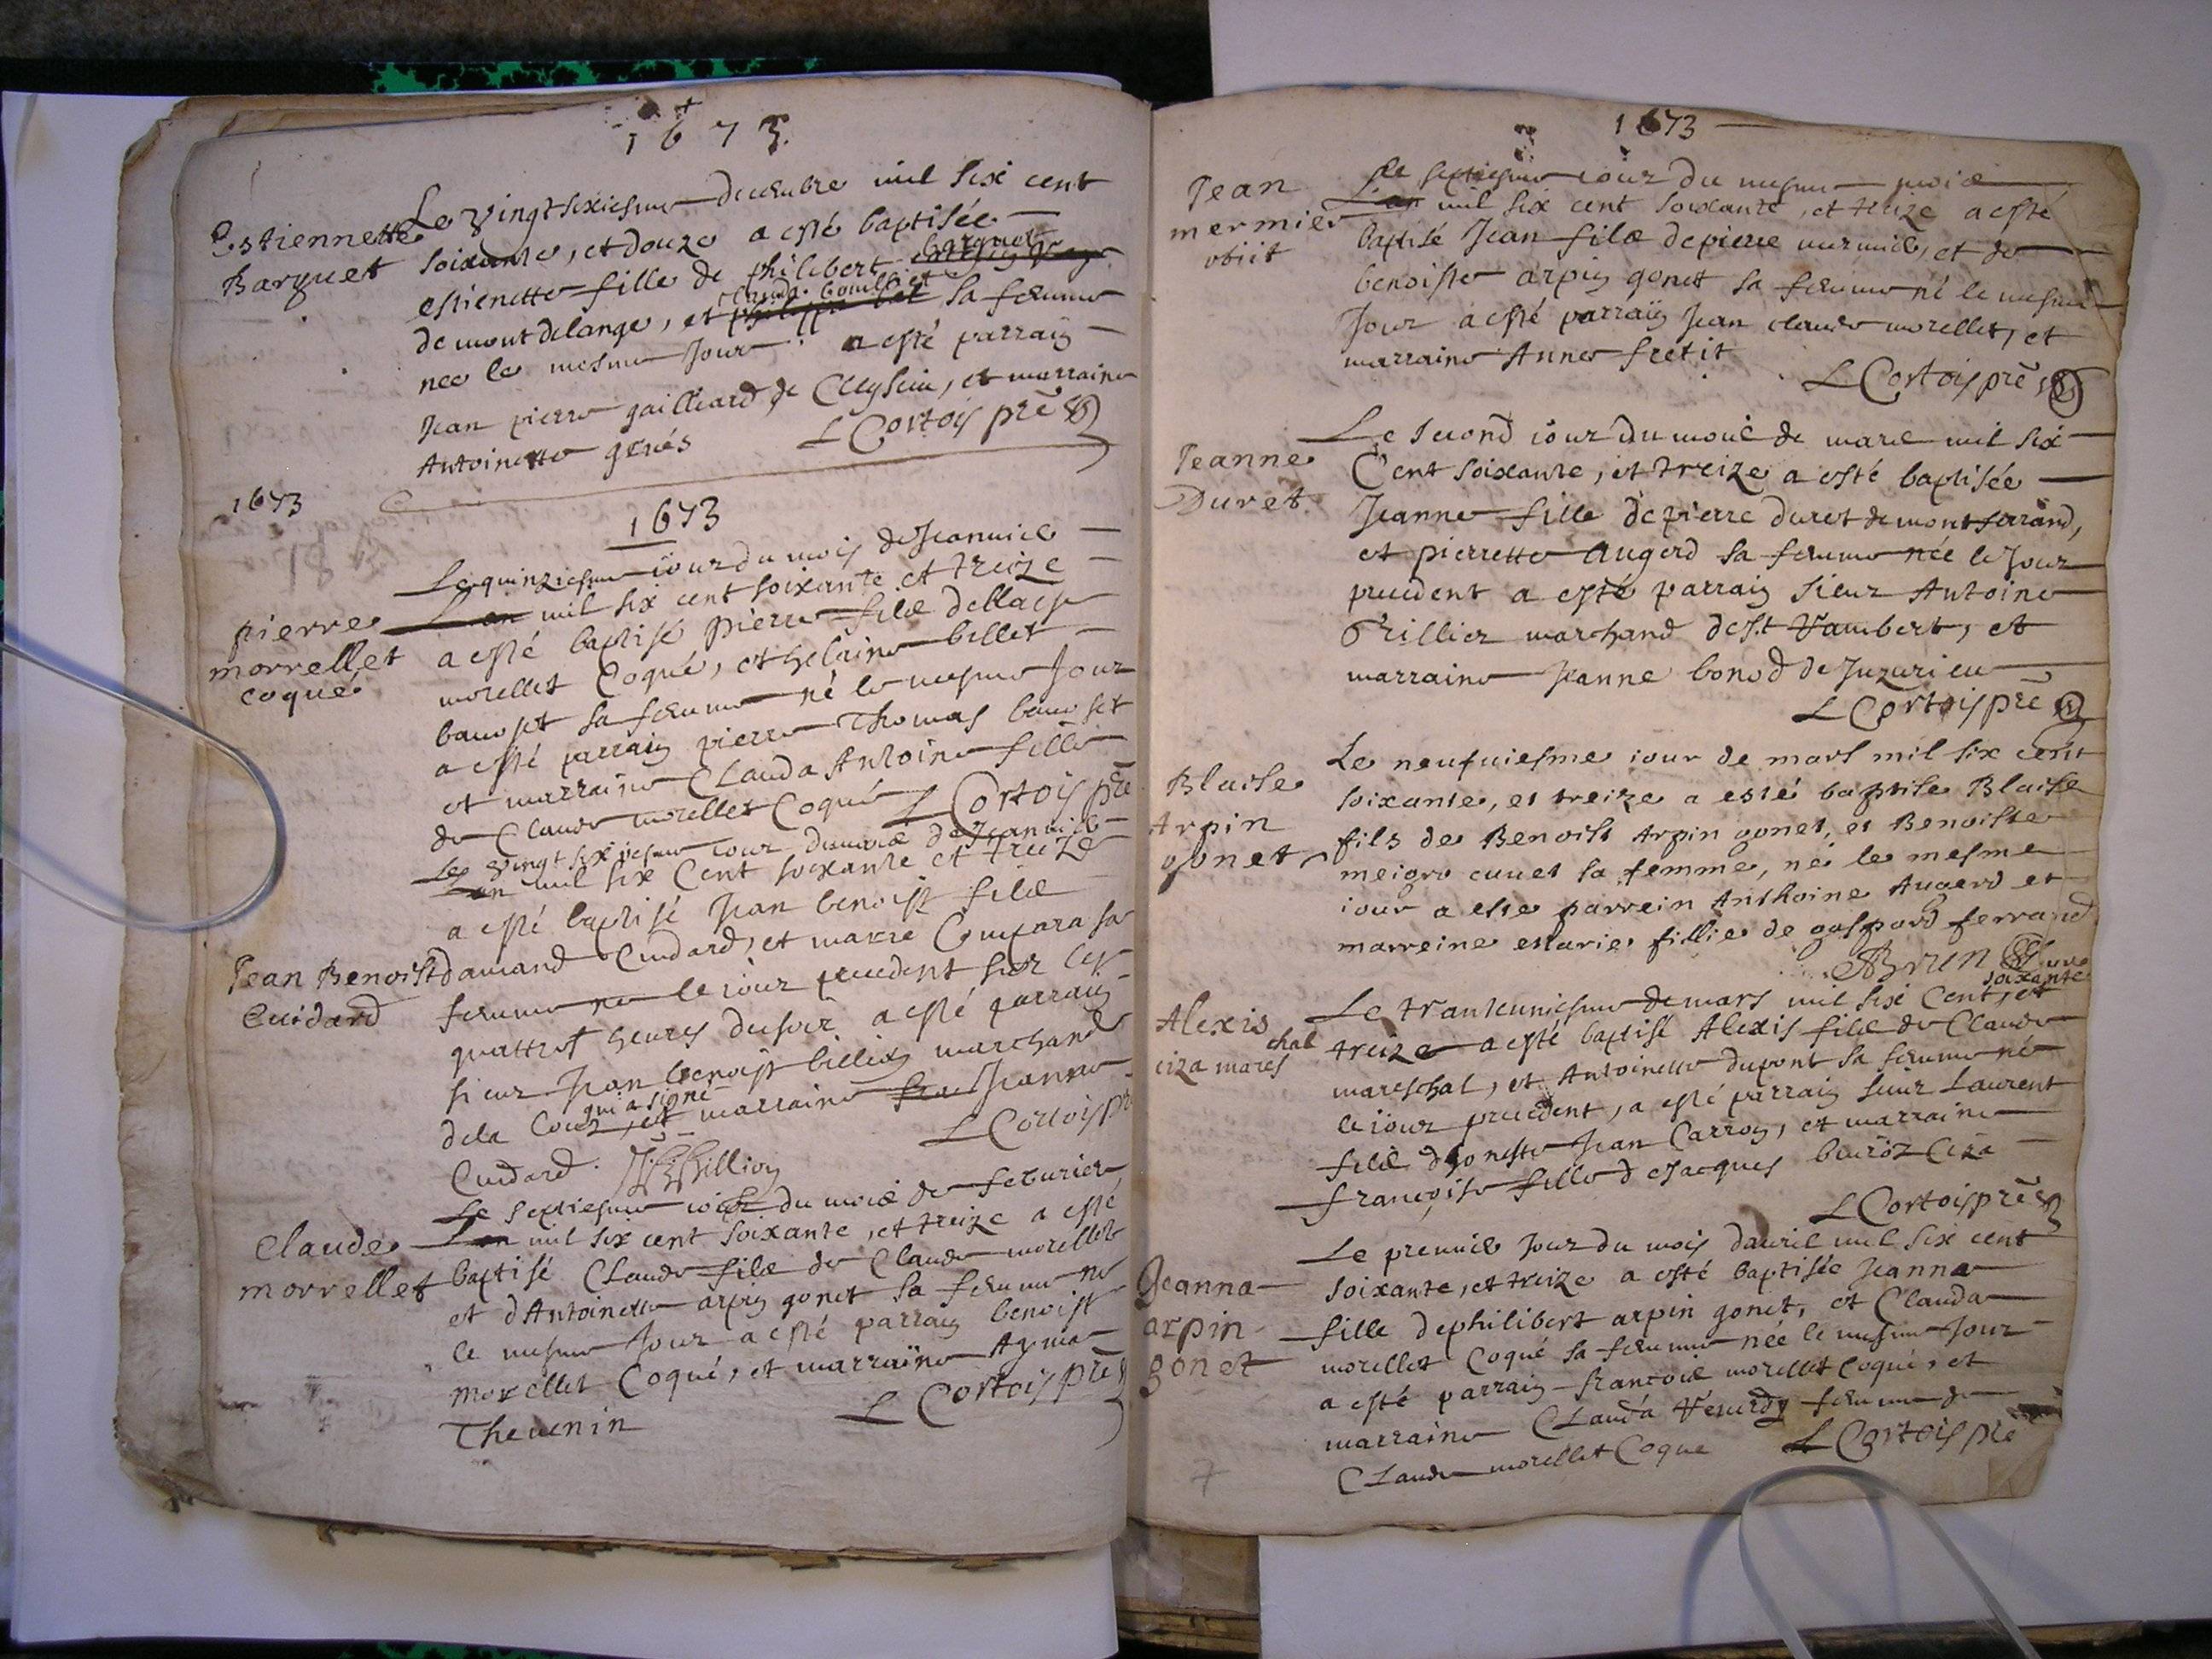 1673.
Estiennette
Barquet
Le Vingtsixiesme decembre mil six cent
soixante, et douze a esté baptisée
estienette fille de philibert barquet
de mont delange, et clauda sa femme
nee le mesme Jour a esté parrain
Jean pierre gailliard de Cleyseiu, et marraine
Antoinette
L Cortois prē
1673
1673
pierre
morrellet
coqué
Le quinziesme iour du mois de Jeanuier
L'an mil six cent soixante et treize
a esté baptisé pierre fils de
morellet Coqué, et helaine billet
sa femme né le mesme Jour
a esté parrain pierre Thomas
et marraine CLauda Antoine fille
de Claude morellet Coqué L Cortois prē
Jean Benoist
Cuidard
Le Vingt sixiesme iour du mois de Jeanuier
L'an mil six Cent soixante et treize
a esté baptisé Jean benoist fils
Cuidard, et marie Compara sa
femme né le iour precedent sur les
quattres heures du soir a esté parrain
sieur Jean benoist billion marchand
qui a signé
dela Cour, et marraine Jeanne
Cuidard. JBBillion L Cortois pr
Claude
morrellet
Le septiesme iour du mois de feburier
L'an mil six cent soixante, et treize a esté
baptisé CLaude fils de Claude morellet
et d'Antoinette arpin gonet sa femme né
le mesme Jour a esté parrain benoist
morellet Coqué, et marraine
Theuenin
L Cortois prē
1673
Jean
mermier
obiit
Le septiesme iour du mesme mois
L'an mil six cent soixante, et treize a esté
baptisé Jean fils de pierre mermier, et de
benoiste arpin gonet sa femme né le mesme
Jour a esté parrain Jean claude morellet, et
marraine Anne fretit
L Cortois prē
Jeanne
Duret
Le second iour du mois de mars mil six
Cent soixante, et treize a esté baptisée
Jeanne fille de pierre duret de montferrand,
et pierrette Augerd sa femme née le Jour
precedent a esté parrain sieur Antoine
Trillier marchand de St Vambert, et
marraine Jeanne bonod de Juzurieu
L Cortois prē
Blaise
Arpin
gonet
Le neufuiesme iour de mars mil six cent
soixante, et treize a esté baptise Blaise
fils de Benoist Arpin gonet, et Benoiste
meigre cunet sa femme, né le mesme
iour a este parrein Anthoine Augerd et
marreine fillie de gaspard ferrand
ABrun
Alexis
chal
ciza mares
soixante
Le tranteuniesme de mars mil six Cent, et
treize a esté baptisé Alexis fils de Claude
mareschal, et Antoinette dupont sa femme né
le iour precedent, a esté parrain sieur Laurent
fils d'honeste Jean Carron, et marraine
françoise fille de Jacques Ciza
L Cortois prē
Jeanna
arpin
gonet
Le premier Jour du mois dauril mil six cent
soixante, et treize a esté baptisée Jeanna
fille de philibert arpin gonet, et Clauda
morellet Coqué sa femme née le mesme Jour
a esté parrain francois morellet Coqué, et
marraine CLauda femme de
CLaude morellet Coque L Cortois prē
7